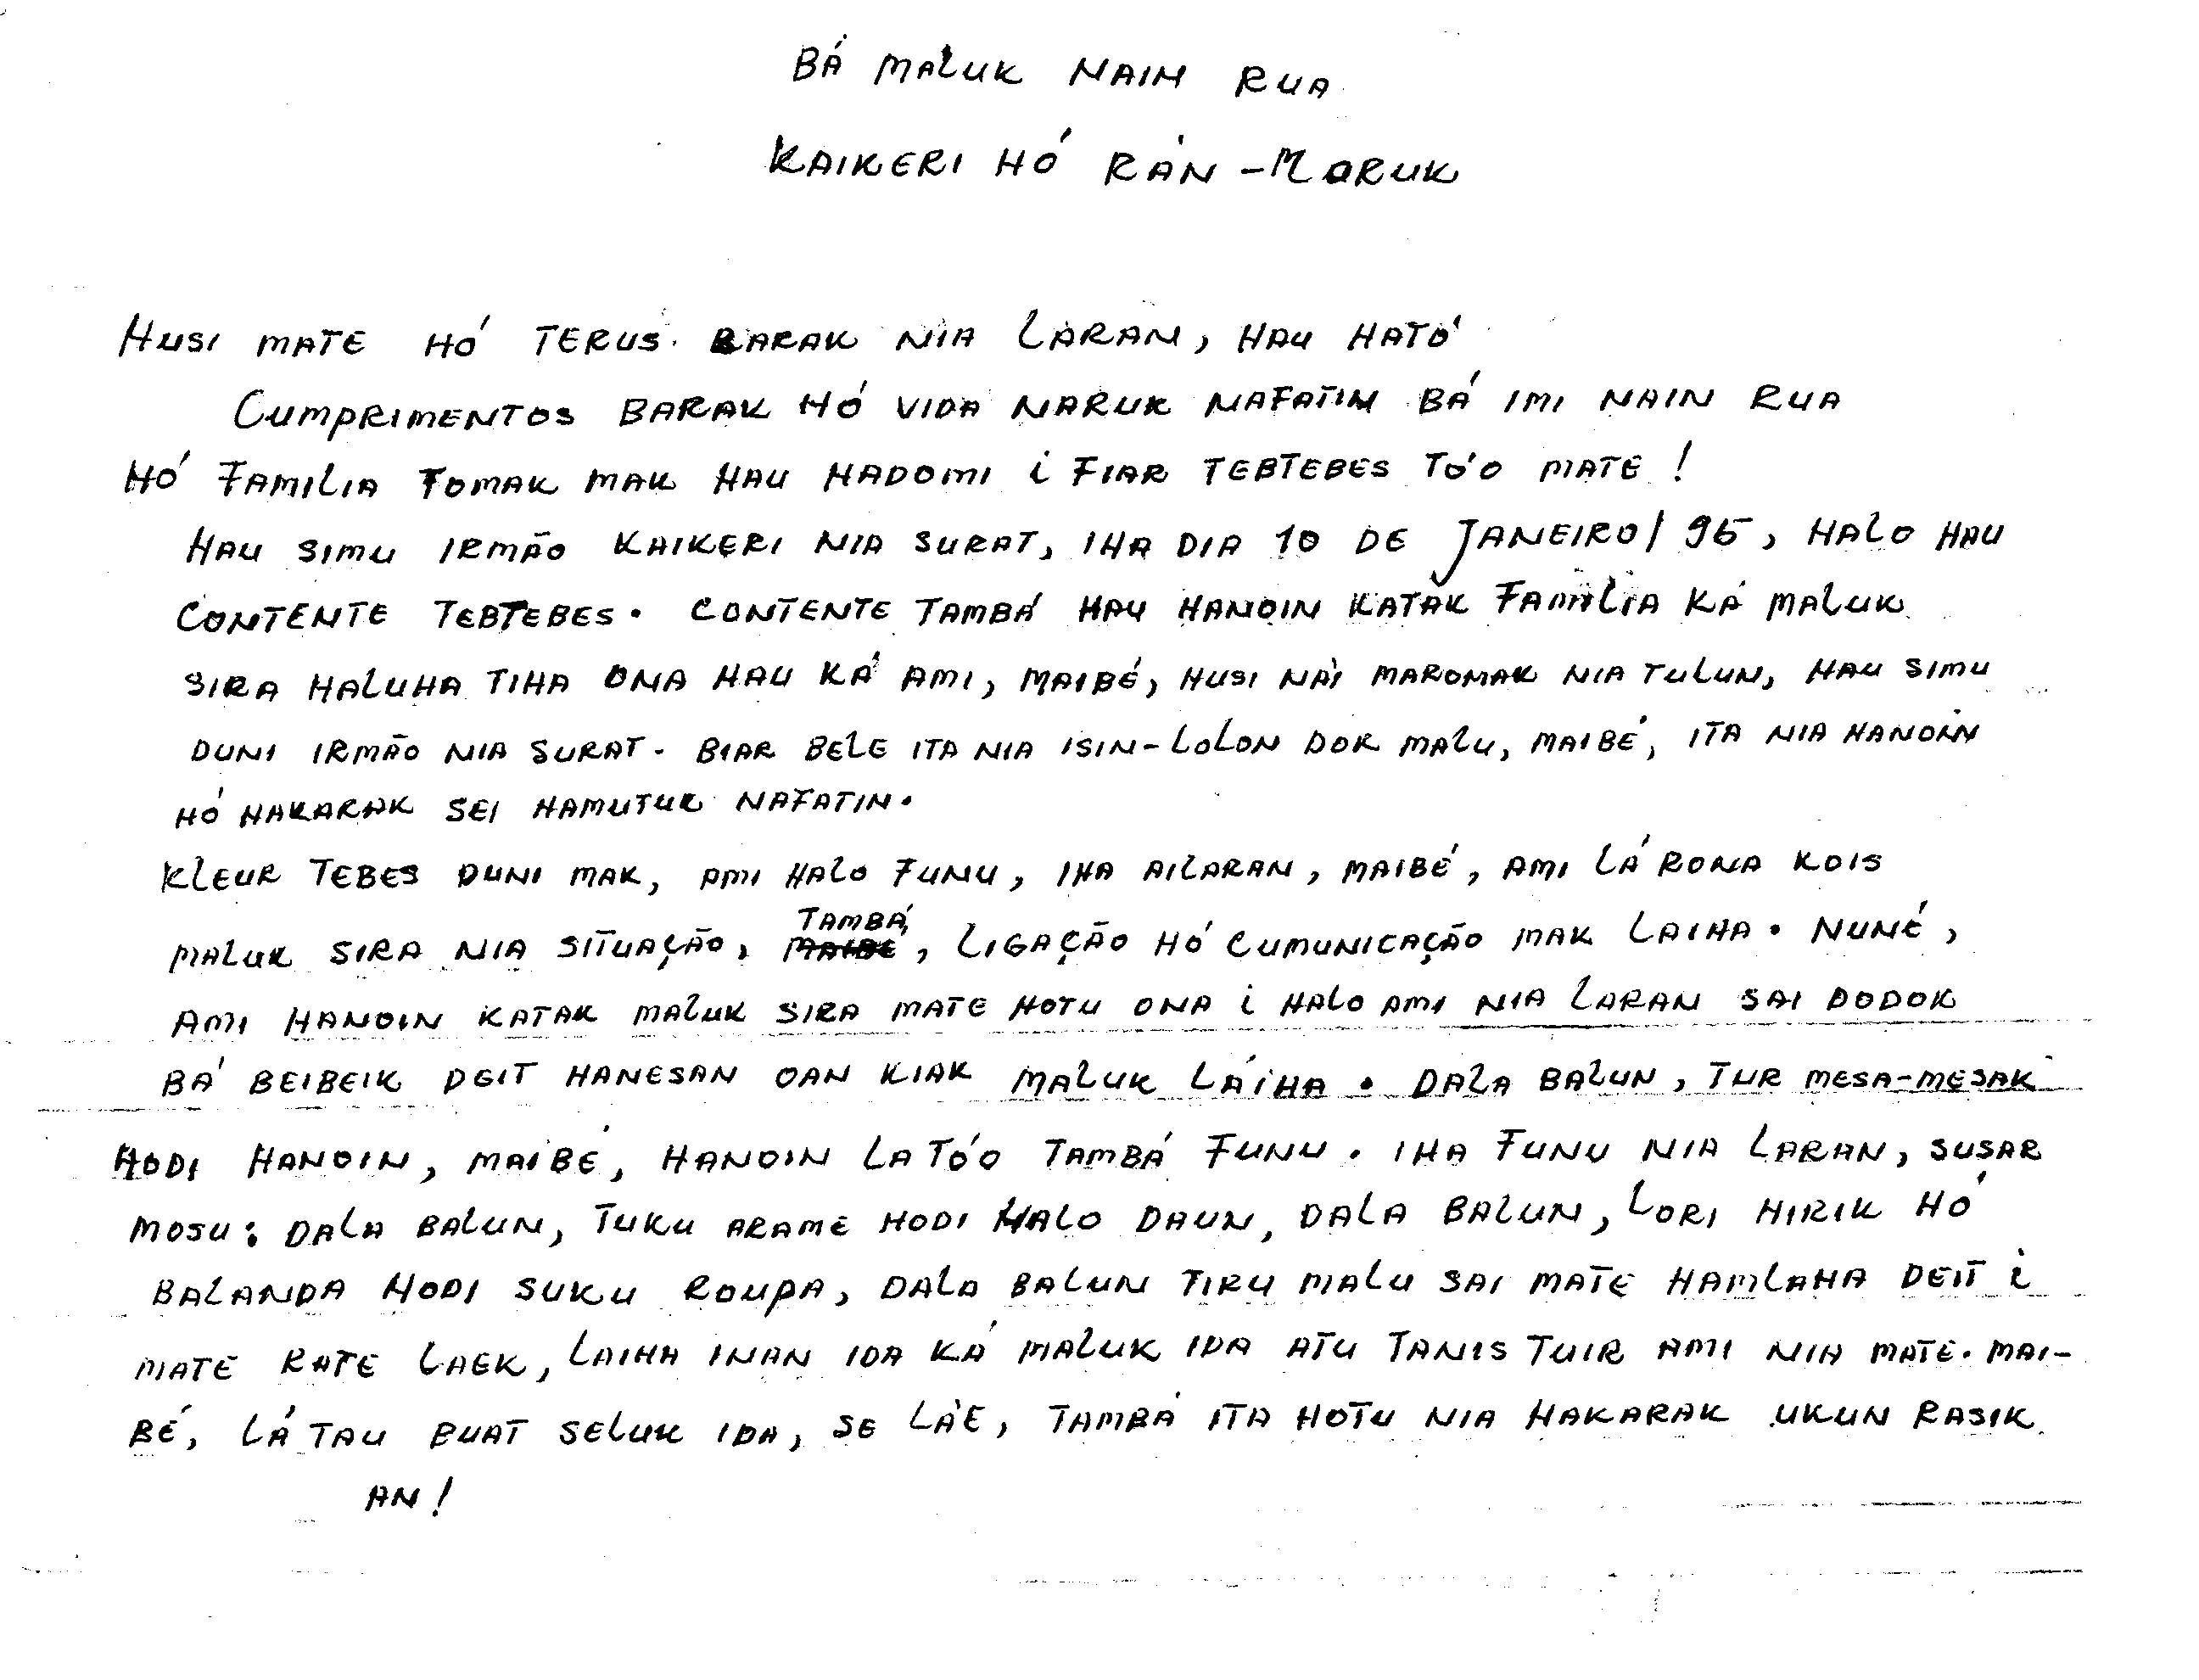 BÁ MALUK NAIN RUA
KAIKERI HÓ RÁN-MORUK
HUSI MATE HÓ TERUS BARAK NIA LARAN, HAU HATÓ
CUMPRIMENTOS BARAK HÓ VIDA NARUK NAFATIN BÁ IMI NAIN RUA
HÓ FAMILIA TOMAK MAK HAU HADOMI I FIAR TEBTEBES TÓ'O MATE!
HAU SIMU IRMÃO KAIKERI NIA SURAT, IHA DIA 10 DE JANEIRO/95, HALO HAU
CONTENTE TEBTEBES. CONTENTE TAMBÁ HAU HANOIN KATAK FAMILIA KÁ MALUK
SIRA HALUHA TIHA ONA HAU KÁ AMI, MAIBÉ, HUSI NÁI MAROMAK NIA TULUN, HAU SIMU
DUNI IRMÃO NIA SURAT. BIAR BELE ITA NIA ISIN-LOLON DOK MALU, MAIBÉ, ITA NIA HANOIN
HÓ HAKARAK SEI HAMUTUK NAFATIN.
KLEUR TEBES DUNI MAK, AMI HALO FUNU, IHA AILARAN, MAIBÉ, AMI LÁ RONA KOIS
MALUK SIRA NIA SITUAÇÃO, TAMBÁ, LIGAÇÃO HÓ CUMUNICAÇÃO MAK LAIHA. NUNÉ,
AMI HANOIN KATAK MALUK SIRA MATE HOTU ONA I HALO AMI NIA LARAN SAI DODOK
BÁ BEIBEIK DEIT HANESAN OAN KIAK MALUK LÁIHA. DALA BALUN, TUR MESA-MESAK
HODI HANOIN, MAIBÉ, HANOIN LA TÓ'O TAMBÁ FUNU. IHA FUNU NIA LARAN, SUSAR
MOSU: DALA BALUN, TUKU ARAME HODI HALO DAUN, DALA BALUN, LORI HIRIK HÓ
BALANDA HODI SUKU ROUPA, DALA BALUN TIRU MALU SAI MATE HAMLAHA DEIT I
MATE RATE LAEK, LAIHA INAN IDA KÁ MALUK IDA ATU TANIS TUIR AMI NIA MATE. MAI-
BÉ, LÁ TAU BUAT SELUK IDA, SE LÁE, TAMBÁ ITA HOTU NIA HAKARAK UKUN RASIK
AN!